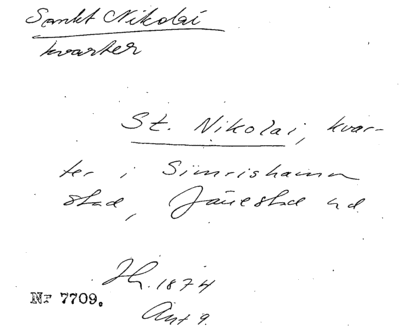 Sankt Nikolai
kvarter
St. Nikolai, kvar-
ter i Simrishamn
stad, Järrestad hd
Jh. 1874
Ant 9.
Nr 7709.